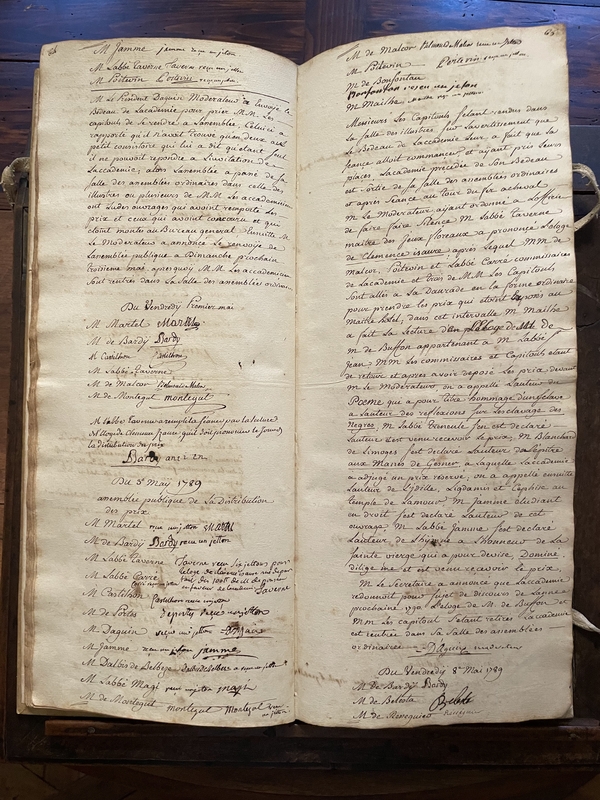 M. Jamme jamme reçu un jetton
M. Labbé Taverne Taverne reçu un jetton
M. Poitevin Poitevin reçu un jetton
M. Le President Daguin Moderateur a Envoyé le
Bedeau de Lacademie pour prier M.M. Les
capitouls de se rendre a Lanemblée. Celui ci a
rapporté qu'il n'avoit trouvé qu'un deux aux
petit consistoire qui lui a dit qu'etant seul
il ne pouvoit repondre a L'invitation de
Laccademie, alors Lanemblée a passé de sa
salle des anemblées ordinaires dans celle des
illustres ou plusieurs de M.M. Les accademiciens
ont Lu des ouvrages qui avoient remporté Les
prix et ceux qui avoient concouru et qui
etoient montés au Bureau general Ensuitte M.
Le Moderateur a annoncé Le renvoy de
Lanemblée publique a Dimanche prochain
troisieme may, apres quoy M.M. Les accademiciens
sont rentrés dans La salle des anemblées ordinaires
Du Vendredy Premier mai
M. Martel Martel
M. de Bardy Bardy
M. Castilhon Castilhon
M. Labbé Taverne
M. de Malcor
M. de Montegut montegut
M. Labbé Taverne a rempli la séance par la lecture
de L'Eloge de clemence isaure qu'il doit prononcer le jour de
la distribution des prix
Bardy
Du 3e May 1789
anemblée publique de La Distribution
des prix
M. Martel reçu un jetton Martel
M. de Bardy Bardy reçu un jetton
M. Labbé Taverne Taverne reçu six jettons pour
M. Labbé Carré
M. Castilhon Castilhon reçu un jetton
M. de Portes deportes reçu un jetton
M. Daguin reçu un jetton Daguin
M. Jamme reçu un jetton jamme
M. Dalbis de Belbeze
M. Labbé Magi reçu un jetton magi
M. de Montegut montegut montegut reçu
un jetton
M. de Malcor reçu un jetton
M. Poitevin Poitevin reçu un jetton
M. de Bonfontan
Bonfontan reçu un jetton
M. Mailhe Mailhe reçu un jetton
Messieurs Les Capitouls s'etant rendus dans
La salle des illustres sur Lavertissement que
Le Bedeau de Laccademie Leur a fait que La
seance alloit commancer et ayant pris Leurs
places Lacademie precedée de son Bedeau
est sortie de sa salle des anemblées ordinaires
et apres seance au tour du fer acheval
M. Le Moderateur ayant ordonné a Loffician
de faire faire silence M. Labbé Taverne
maitre des Jeux floreaux a prononcé L'eloge
de Clemence isaure, apres Lequel M.M. de
Malcor, Poitevin et Labbé Carré commissaires
de Lacademie et trois de M.M. Les Capitouls
sont allés a La Daurade en La forme ordinaire
pour prendre Les prix qui etoient exposés au
Maitre autel; dans cet intervalle M. Mailhe
a fait La Lecture d'un Eloge de
M. de Buffon appartenant a M. Labbé
jean M.M. Les commissaires et Capitouls etant
de retour et apres avoir deposé Les prix devant
M. Le Moderateur on a appellé Lauteur du
Poeme qui a pour titre hommage d'un Esclave
a Lauteur des reflexions sur L'esclavage des
Negres. M. Labbé Verneuile s'en est declaré
Lauteur et est venu recevoir Le prix. M. Blanchard
de Limoges s'est declaré Lauteur de L'epitre
aux Manes de Gesner a Laquelle Laccademie
a adjugé un prix reservé, on a appellé ensuitte
Lauteur de L'ydille, Ligdamis et Cephise au
Temple de Lamour M. Jamme Etudiant
en droit s'est declaré Lauteur de cet
ouvrage. M. Labbé Jamme s'est declaré
Lauteur de L'hymne a L'honneur de La
sainte vierge qui a pour devise, Domine,
dilige me et est venu recevoir Le prix.
M. Le Secretaire a annoncé que Laccademie
redonnoit pour sujet de discours de Lannée
prochaine 1790 L'eloge de M. de Buffon, et
M.M. Les capitouls s'etant retirés Laccademie
est rentrée dans sa salle des anemblées
ordinaires Daguin moderateur
Du Vendredy 8e Mai 1789
M. De Bardy Bardy
M. de Belesta Belesta
M. de Reneguier